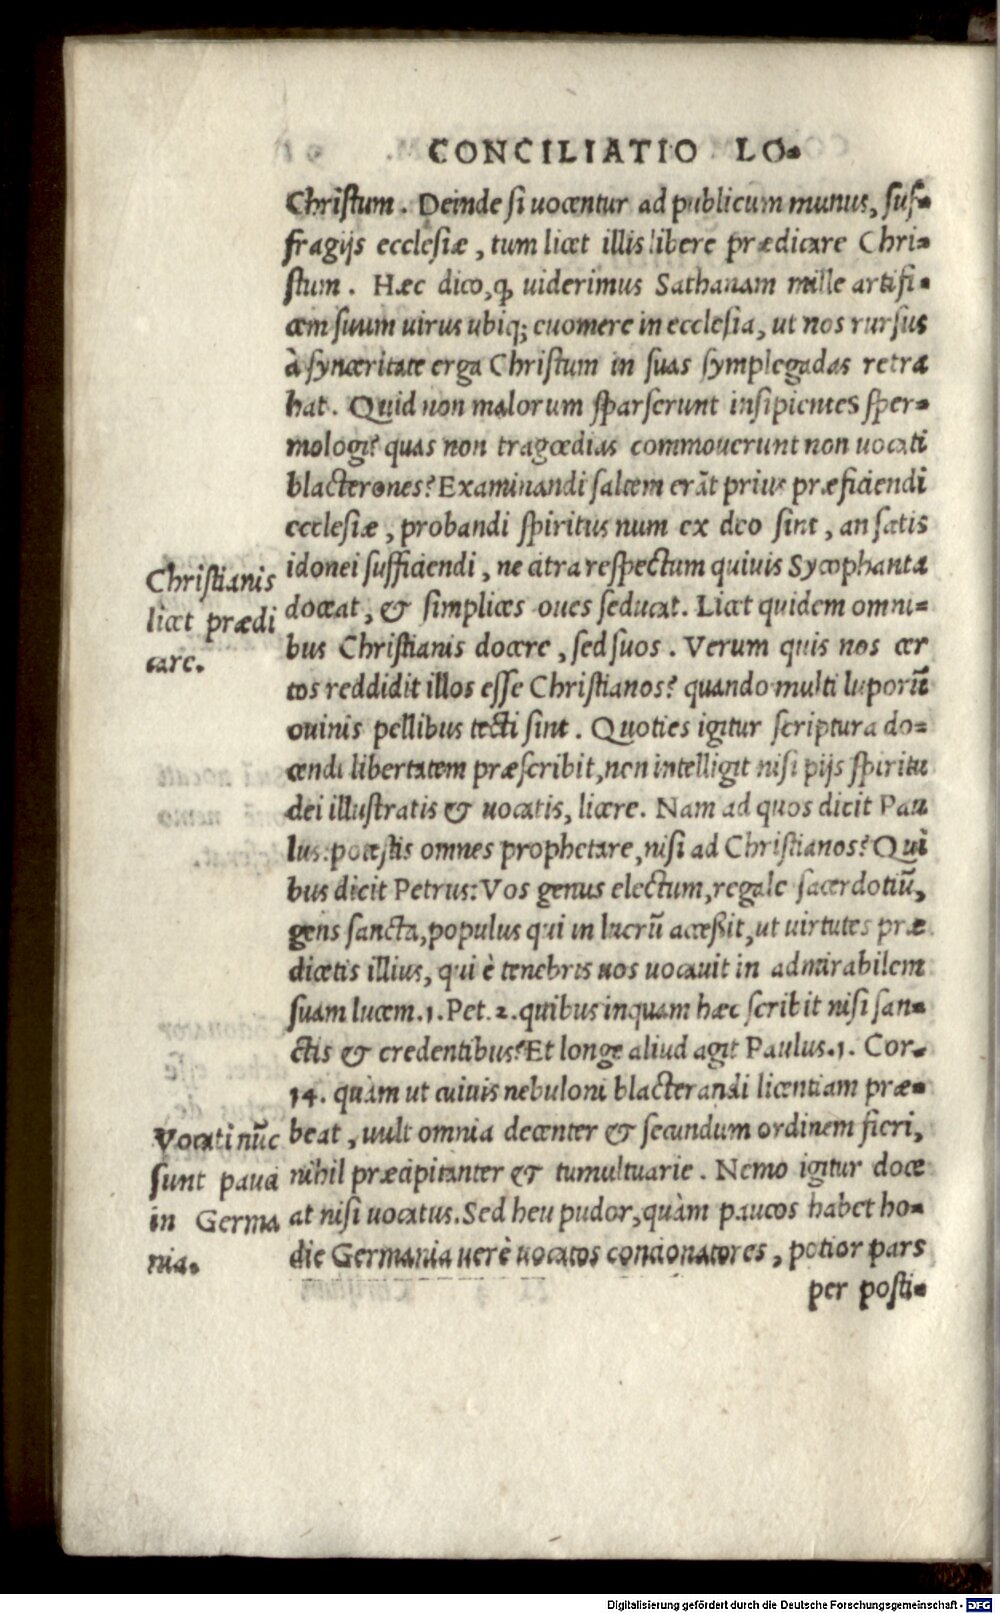 CONCILIATIO LO-
Christum. Deinde si uocentur ad publicum munus, suf-
fragijs ecclesiæ, tum licet illis libere prædicare Chri-
stum. Hæc dico, ꝙ uiderimus Sathanam mille artifi-
cem suum uirus ubiq; euomere in ecclesia, ut nos rursus
à synceritate erga Christum in suas symplegadas retra
hat. Quid non malorum sparserunt insipientes sper-
mologi? quas non tragœdias commouerunt non uocati
blacterones? Examinandi saltem erãt prius præficiendi
ecclesiæ, probandi spiritus num ex deo sint, an satis
idonei sufficiendi, ne citra respectum quiuis Sycophanta
doceat, & simplices oues seducat. Licet quidem omni-
bus Christianis docere, sed suos. Verum quis nos cer
tos reddidit illos esse Christianos? quando multi luporũ
ouinis pellibus tecti sint. Quoties igitur scriptura do-
cendi libertatem præscribit, non intelligit nisi pijs spiritu
dei illustratis & uocatis, licere. Nam ad quos dicit Pau
lus: potestis omnes prophetare, nisi ad Christianos? Qui
bus dicit Petrus: Vos genus electum, regale sacerdotiũ,
gens sancta, populus qui in lucrũ acceßit, ut uirtutes præ
dicetis illius, qui è tenebris uos uocauit in admirabilem
suam lucem. 1. Pet. 2. quibus inquam hæc scribit nisi san-
ctis & credentibus? Et longe aliud agit Paulus. 1. Cor.
14. quàm ut cuiuis nebuloni blacterandi licentiam præ-
beat, uult omnia decenter & secundum ordinem fieri,
nihil præcipitanter & tumultuarie. Nemo igitur doce
at nisi uocatus. Sed heu pudor, quàm paucos habet ho-
die Germania uerè uocatos concionatores, potior pars
per posti-
Christianis
licet prædi
care.
Vocati nũc
sunt pauci
in Germa
nia.
Digitalisierung gefördert durch die Deutsche Forschungsgemeinschaft - DFG